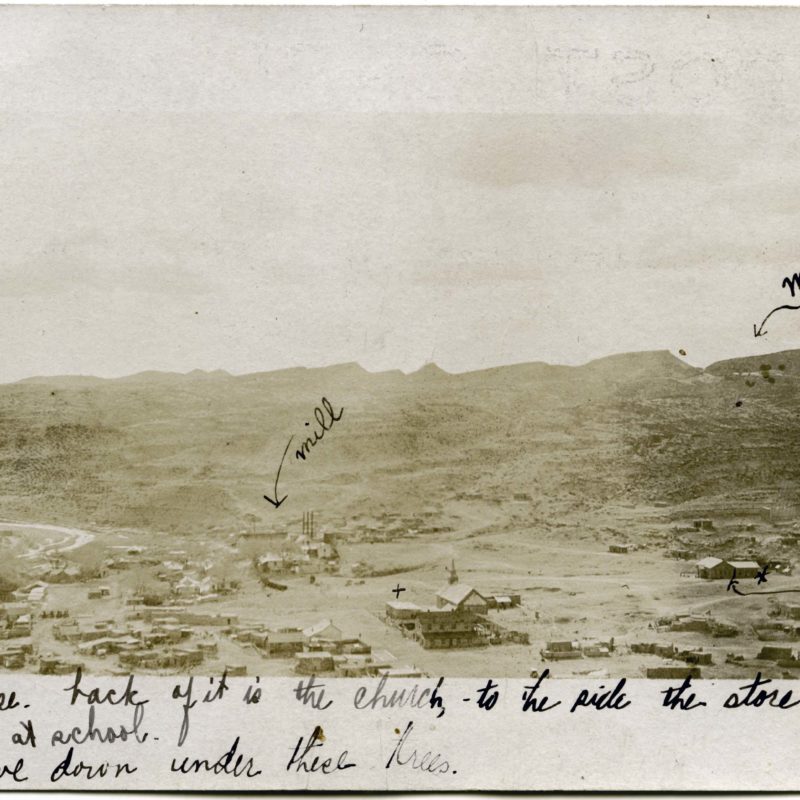 mill
back of it is the church, - to the side the store
at school.
down under these trees.